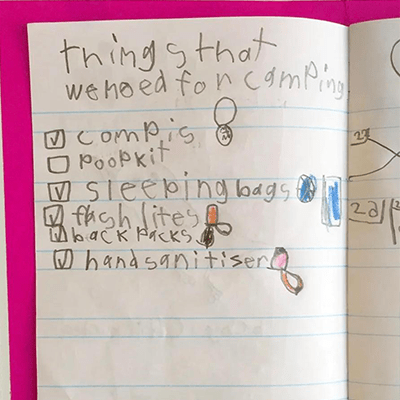 things that
we noed for camping
compis
poopkit
sleeping bags
flashlites
back packs
handsanitiser